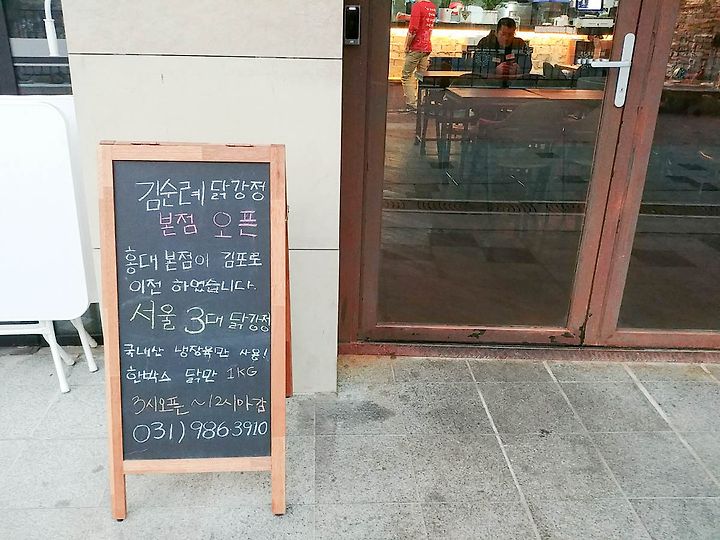 김순례 닭강정
본점 오픈
홍대 본점이 김포로
이전 하였습니다.
서울 3대 닭강정
국내산 냉장육만 사용!
한박스 닭만 1KG
3시오픈 ~ 12시마감
031) 986 3910